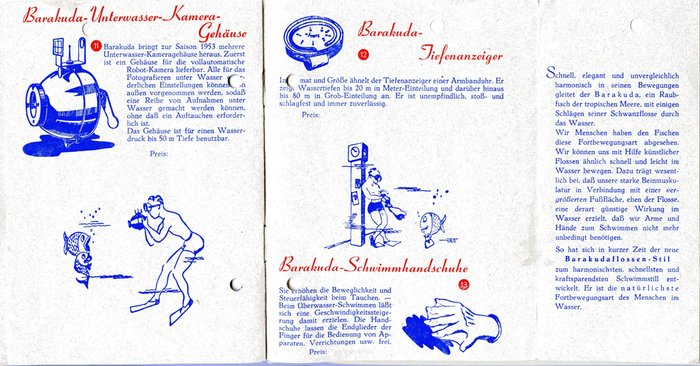 Barakuda-Unterwasser-Kamera-
Gehäuse
11
Barakuda bringt zur Saison 1953 mehrere
Unterwasser-Kameragehäuse heraus. Zuerst
ist ein Gehäuse für die vollautomatische
Robot-Kamera lieferbar. Alle für das
Fotografieren unter Wasser
derlichen Einstellungen können
außen vorgenommen werden, sodaß
eine Reihe von Aufnahmen unter
Wasser gemacht werden können,
ohne daß ein Auftauchen erforder-
lich ist.
Das Gehäuse ist für einen Wasser-
druck bis 50 m Tiefe benutzbar.
Preis:
Barakuda-
12
Tiefenanzeiger
mat und Größe ähnelt der Tiefenanzeiger einer Armbanduhr. Er
zeigt Wassertiefen bis 20 m in Meter-Einteilung und darüber hinaus
bis 80 m in Grob-Einteilung an. Er ist unempfindlich, stoß- und
schlagfest und immer zuverlässig.
Preis:
Barakuda-Schwimmhandschuhe
13
Sie erhöhen die Beweglichkeit und
Steuerfähigkeit beim Tauchen. —
Beim Überwasser-Schwimmen läßt
sich eine Geschwindigkeitssteige-
rung damit erzielen. Die Hand-
schuhe lassen die Endglieder der
Finger für die Bedienung von Ap-
paraten, Verrichtungen usw. frei.
Preis:
Schnell, elegant und unvergleichlich
harmonisch in seinen Bewegungen
gleitet der Barakuda, ein Raub-
fisch der tropischen Meere, mit einigen
Schlägen seiner Schwanzflosse durch
das Wasser.
Wir Menschen haben den Fischen
diese Fortbewegungsart abgesehen.
Wir können uns mit Hilfe künstlicher
Flossen ähnlich schnell und leicht im
Wasser bewegen. Dazu trägt wesent-
lich bei, daß unsere starke Beinmusku-
latur in Verbindung mit einer ver-
größerten Fußfläche, eben der Flosse,
eine derart günstige Wirkung im
Wasser erzielt, daß wir Arme und
Hände zum Schwimmen nicht mehr
unbedingt benötigen.
So hat sich in kurzer Zeit der neue
Barakudaflossen-Stil
zum harmonischsten, schnellsten und
kraftsparendsten Schwimmstil ent-
wickelt. Er ist die natürlichste
Fortbewegungsart des Menschen im
Wasser.